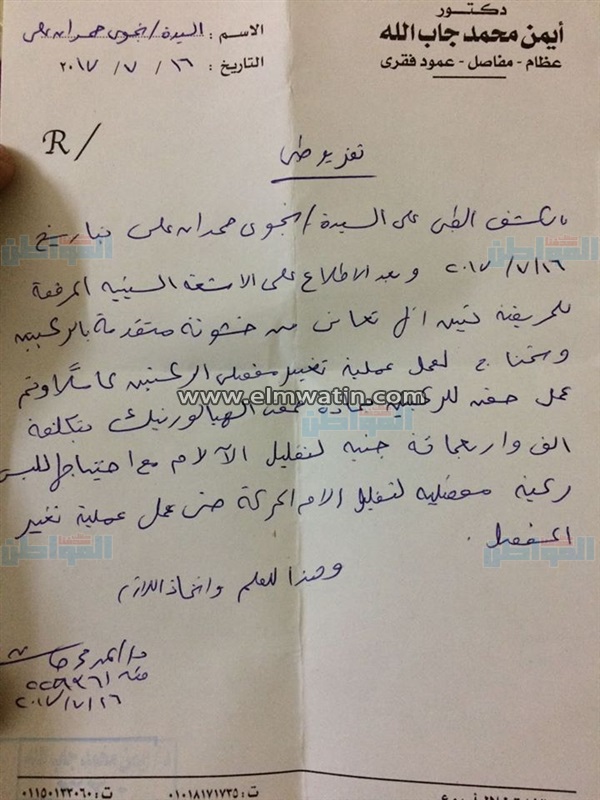 دكتور
أيمن محمد جاب الله
عظام - مفاصل - عمود فقرى
الاسم : السيدة / نجوى حمدان على
التاريخ : ١٦ / ٧ / ٢٠١٧
R/
تقرير طبى
بالكشف الطبى على السيدة / نجوى حمدان على بتاريخ
١٦/٧/٢٠١٧ وبعد الاطلاع على الاشعة السينية المرفقة
للمريضة تبين انها تعانى من خشونة متقدمة بالركبتين
وتحتاج لعمل عملية تغيير مفصلى الركبتين عاجلا وتم
عمل حقن للركبتين بمادة الهيالورنيك بتكلفة
الف واربعمائة جنيه لتقليل الآلام مع احتياجها للبس
ركبة مفصلية لتقليل الام الحركة حتى عمل عملية تغيير
المفصل .
وهذا للعلم واتخاذ اللازم
www.elmwatin.com
المواطن
د/ ايمن محمد جاب الله
١٦/٧/٢٠١٧
د/ أيمن محمد جاب الله
ت : ٠١٠١٨١٧١٧٣٥
ت : ٠١١٥٠١٣٢٠٦٠